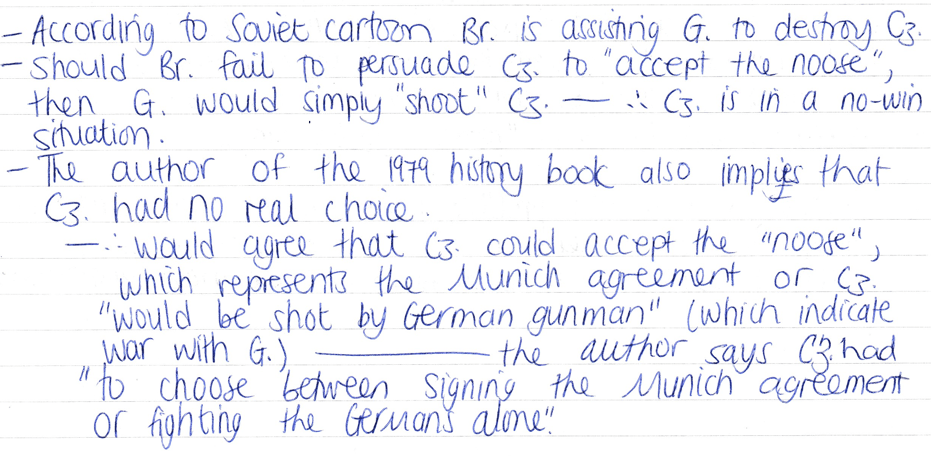 – According to Soviet cartoon Br. is assisting G. to destroy Cz.
– Should Br. fail to persuade Cz. to "accept the noose",
then G. would simply "shoot" Cz. — ∴ Cz. is in a no-win
situation.
– The author of the 1979 history book also implies that
Cz. had no real choice.
— ∴ would agree that Cz. could accept the "noose",
which represents the Munich agreement or Cz.
"would be shot by German gunman" (which indicate
war with G.) ——— the author says Cz. had
"to choose between signing the Munich agreement
or fighting the Germans alone".